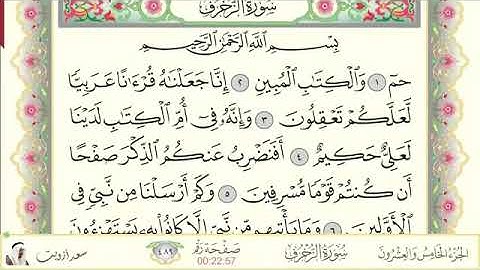 سُورَةُ الزُّخْرُفِ
بِسْمِ اللَّهِ الرَّحْمَٰنِ الرَّحِيمِ
حمٓ ١ وَالْكِتَابِ الْمُبِينِ ٢ إِنَّا جَعَلْنَاهُ قُرْءَانًا عَرَبِيًّا
لَّعَلَّكُمْ تَعْقِلُونَ ٣ وَإِنَّهُ فِىٓ أُمِّ الْكِتَابِ لَدَيْنَا
لَعَلِىٌّ حَكِيمٌ ٤ أَفَنَضْرِبُ عَنكُمُ الذِّكْرَ صَفْحًا
أَن كُنتُمْ قَوْمًا مُّسْرِفِينَ ٥ وَكَمْ أَرْسَلْنَا مِن نَّبِىٍّ فِى
الْأَوَّلِينَ ٦ وَمَا يَأْتِيهِم مِّن نَّبِىٍّ إِلَّا كَانُوا۟ بِهِۦ يَسْتَهْزِءُونَ
الجزء الخامس والعشرون سُورَةُ الزُّخْرُفِ ٤٨٩ صفحة رقم
00:22:57